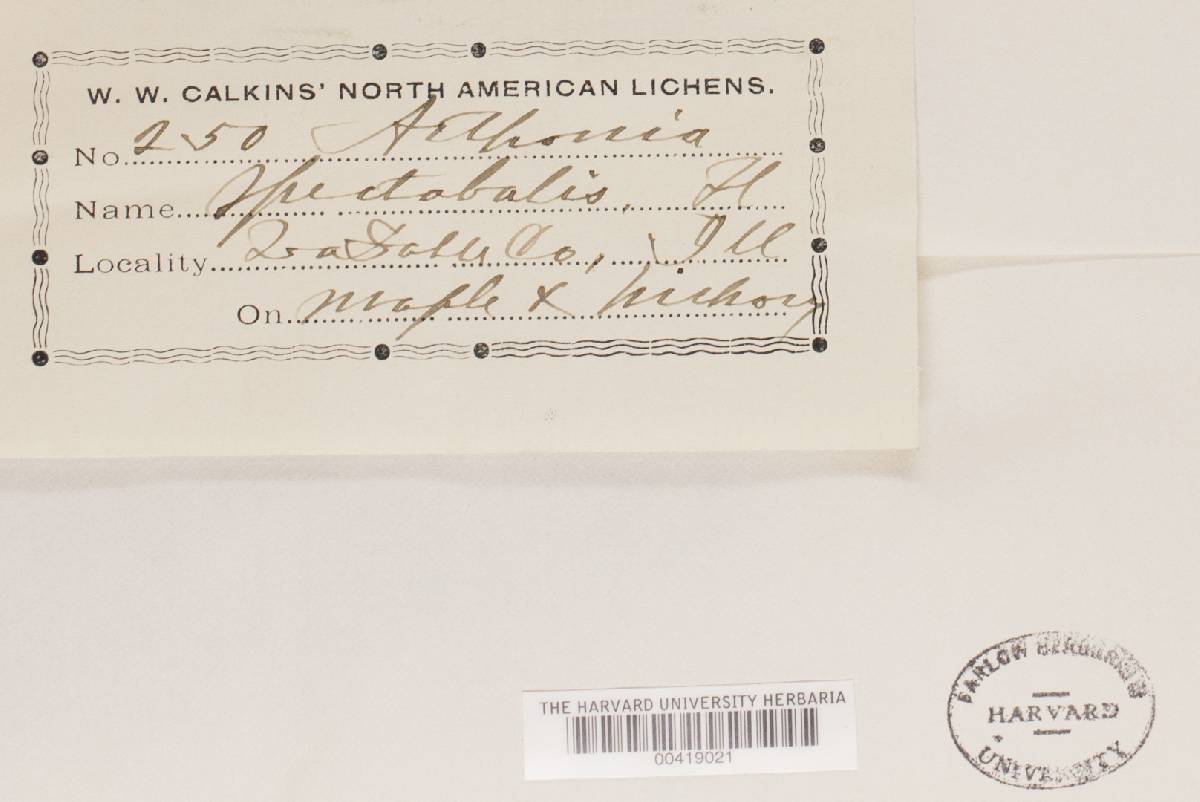 W. W. CALKINS' NORTH AMERICAN LICHENS.
No. 250 Arthonia
Name spectabalis, Fl
Locality LaSalle Co, Ill
On maple & hickory
THE HARVARD UNIVERSITY HERBARIA
00419021
FARLOW HERBARIUM
HARVARD
UNIVERSITY